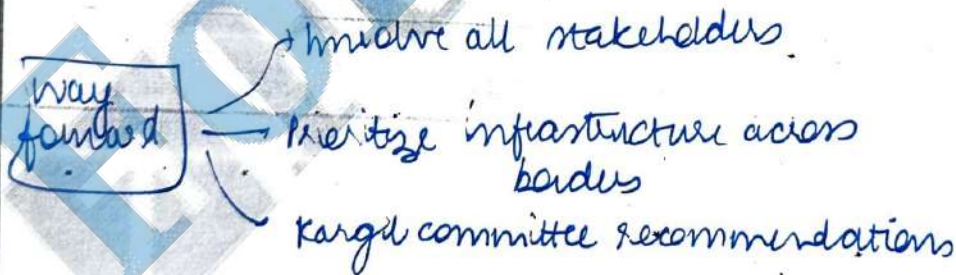 way
forward
Involve all stakeholders
Prioritize infrastructure across
borders
Kargil committee recommendations